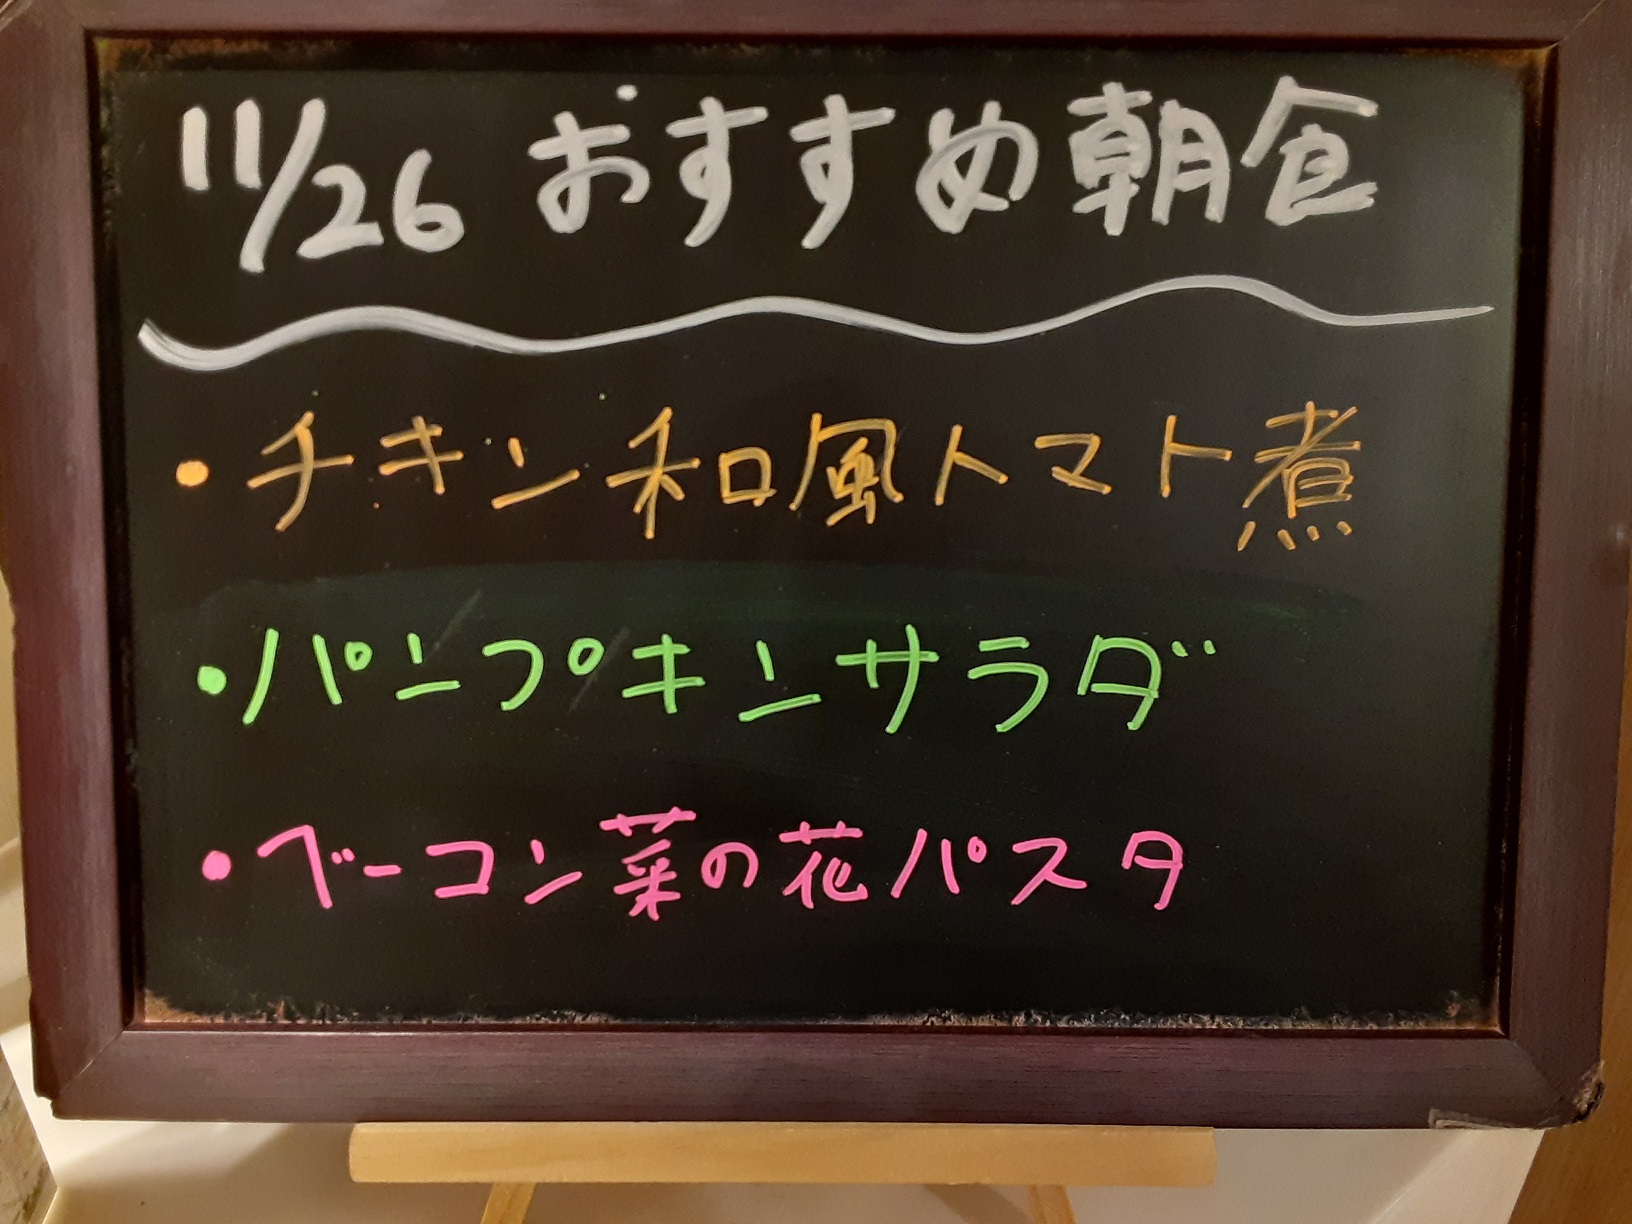 11/26 おすすめ朝食
・チキン和風トマト煮
・パンプキンサラダ
・ベーコン菜の花パスタ